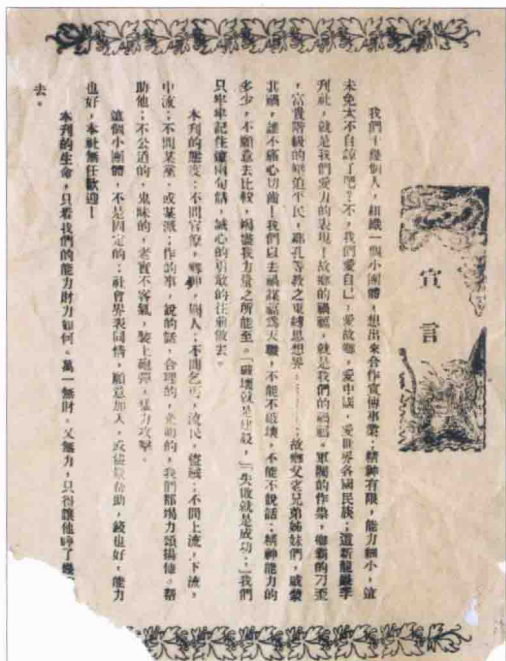 宣言
我們十幾個人，組織一個小團體，想出來合作宣傳事業；精神有限，能力綿小，這
未免太不自諒了吧？不，我們愛自己，愛故鄉，愛中國，愛世界各國民族；這新龍巖季
刊社，就是我們愛力的表現！故鄉的禍福，就是我們的禍福。軍閥的作祟，鄉霸的刁歪
，富貴階級的壓迫平民，孔孔等教之束縛思想界………故鄉父老兄弟姊妹們，感蒙
其禍，誰不痛心切齒！我們以去禍謀福爲天職，不能不破壞，不能不說話；精神能力的
多少，不願意去比較，竭盡我力量之所能至。「破壞就是建設，」「失敗就是成功；」我們
只牢牢記住這兩句話，誠心的勇敢的往前做去。
本刊的態度：不問官僚，鄉紳，闊人；不問乞丐，流民，盜賊；不問上流，下流，
中流；不問某黨，或某派；作的事，說的話，合理的，光明的，我們都竭力頌揚他。幫
助他；不公道的，鬼昧的，老實不客氣，裝上砲彈，猛力攻擊。
這個小團體，不是固定的；社會界表同情，願意加入，或樂於幫助，錢也好，能力
也好，本社無任歡迎！
本刊的生命，只看我們的能力財力如何。萬一無財。又無力，只得讓他
去。